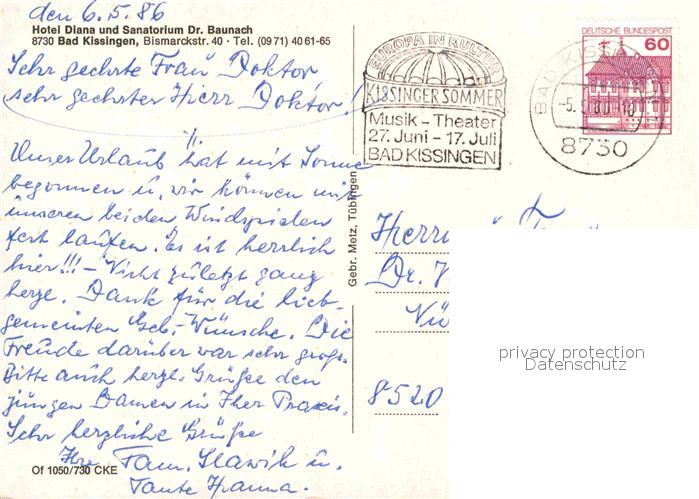 den 6.5.86
Hotel Diana und Sanatorium Dr. Baunach
8730 Bad Kissingen, Bismarckstr. 40 · Tel. (09 71) 40 61-65
Sehr geehrte Frau Doktor
sehr geehrter Herr Doktor!
Unser Urlaub hat mit Sonne
begonnen u. wir können mit
unseren beiden Windspielen
fest laufen. Es ist herrlich
hier!!! – Nicht zuletzt ganz
herzl. Dank für die lieb
gemeinten Geb.-Wünsche. Die
Freude darüber war sehr groß.
Bitte auch herzl. Grüße den
jungen Damen in Ihrer Praxis.
Sehr herzliche Grüße
Ihre Fam. Slawik u.
Tante Hanna.
Of 1050/730 CKE
Gebr. Metz, Tübingen
EUROPA IN KULTUR
KISSINGER SOMMER
Musik – Theater
27. Juni – 17. Juli
BAD KISSINGEN
BAD KISSI
8730
DEUTSCHE BUNDESPOST
60
Herrn u. Fr
Dr.
8520
privacy protection
Datenschutz